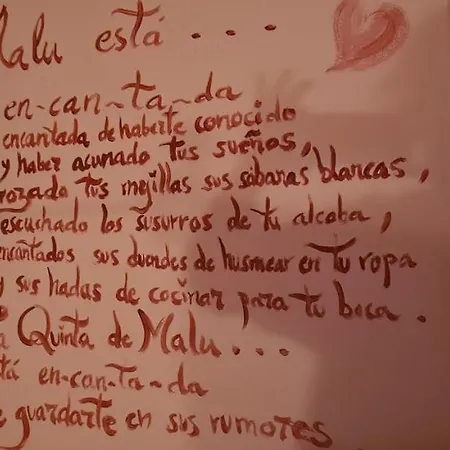 Malu está . . . .
en-can-ta-da
encantada de haberte conocido
y haber acunado tus sueños,
rozado tus mejillas sus sábanas blancas,
escuchado los susurros de tu alcoba,
encantados sus duendes de husmear en tu ropa
y sus hadas de cocinar para tu boca.
a Quinta de Malu . . .
tá en-can-ta-da
e guardarte en sus rumores